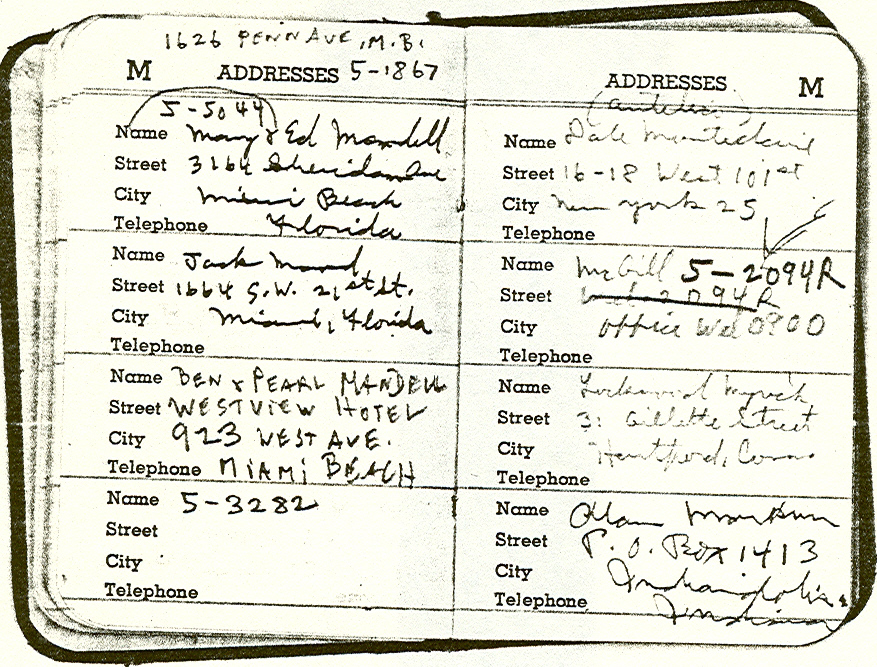 1626 PENN AVE, M.B.
M ADDRESSES 5-1867
5-5044
Name Mary & Ed Mandell
Street 3164 Sheridan Ave
City Miami Beach
Telephone Florida
Name Jack
Street 1664 S.W. 21st St.
City Miami, Florida
Telephone
Name BEN & PEARL MANDELL
Street WESTVIEW HOTEL
City 923 WEST AVE.
Telephone MIAMI BEACH
Name 5-3282
Street
City
Telephone
ADDRESSES M
Name Dale
Street 16-18 West 101st
City New York 25
Telephone
Name McGill 5-2094R
Street 2094R
City Office Wel 0900
Telephone
Name Lockwood
Street 31 Gillette Street
City Hartford, Conn
Telephone
Name Alan
Street P.O. Box 1413
City Indianapolis,
Telephone Indiana